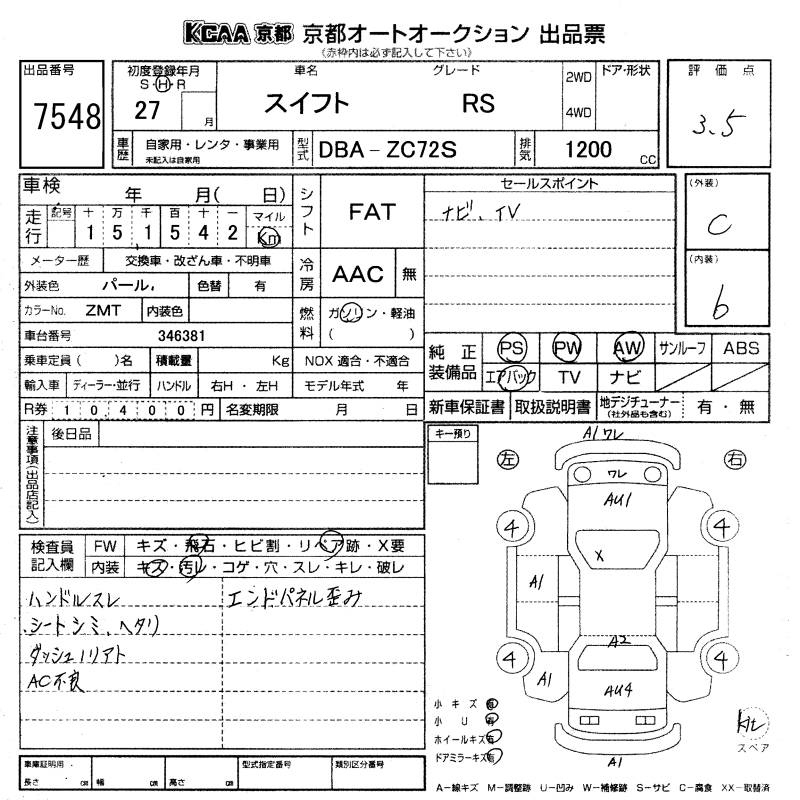 KCAA 京都 京都オートオークション 出品票
(赤枠内は必ず記入して下さい)
出品番号
7548
初度登録年月
S・H・R
27
月
車名
スイフト
グレード
RS
2WD
4WD
ドア・形状
評価点
3.5
車歴
自家用・レンタ・事業用
未記入は自家用
型式
DBA-ZC72S
排気
1200
CC
車検
年 月( 日)
走行
記号 十 万 千 百 十 一
1 5 1 5 4 2
マイル
Km
メーター歴
交換車・改ざん車・不明車
外装色
パール.
色替
有
カラーNo.
ZMT
内装色
車台番号
346381
乗車定員( )名
積載量
Kg
輸入車
ディーラー・並行
ハンドル
右H・左H
R券
10400円
名変期限
月 日
シフト
FAT
冷房
AAC
無
燃料
ガソリン・軽油
( )
NOX 適合・不適合
モデル年式 年
セールスポイント
ナビ、TV
(外装)
C
(内装)
b
純正
装備品
PS
PW
AW
サンルーフ
ABS
エアバック
TV
ナビ
新車保証書
取扱説明書
地デジチューナー
(社外品も含む)
有・無
注意事項(出品店記入)
後日品
キー預り
検査員
記入欄
FW
キズ・飛石・ヒビ割・リペア跡・X要
内装
キズ・汚レ・コゲ・穴・スレ・キレ・破レ
ハンドルスレ
エンドパネル歪み
シートシミ、ヘタリ
ダッシュノリアト
AC不良
左
右
A1 ワレ
ワレ
AU1
4
4
X
A1
A2
4
4
A1
AU4
A1
小キズ 有
小U 有
ホイールキズ 有
ドアミラーキズ 有
スペア
車庫証明用・
長さ cm
幅 cm
高さ cm
型式指定番号
類別区分番号
A-線キズ M-調整跡 U-凹み W-補修跡 S-サビ C-腐食 XX-取替済